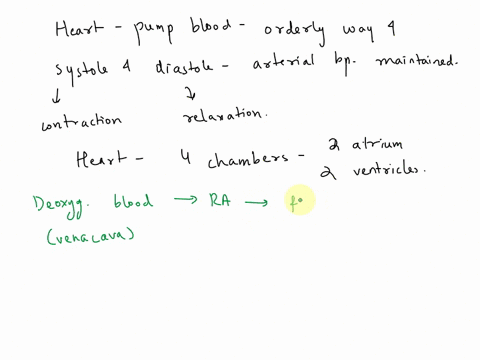 Heart - pump blood - orderly way 4
systole 4 diastole - arterial bp. maintained.
contraction relaxation.
Heart - 4 chambers - 2 atrium
2 ventricles.
Deoxyg. blood → RA →
(venacava)